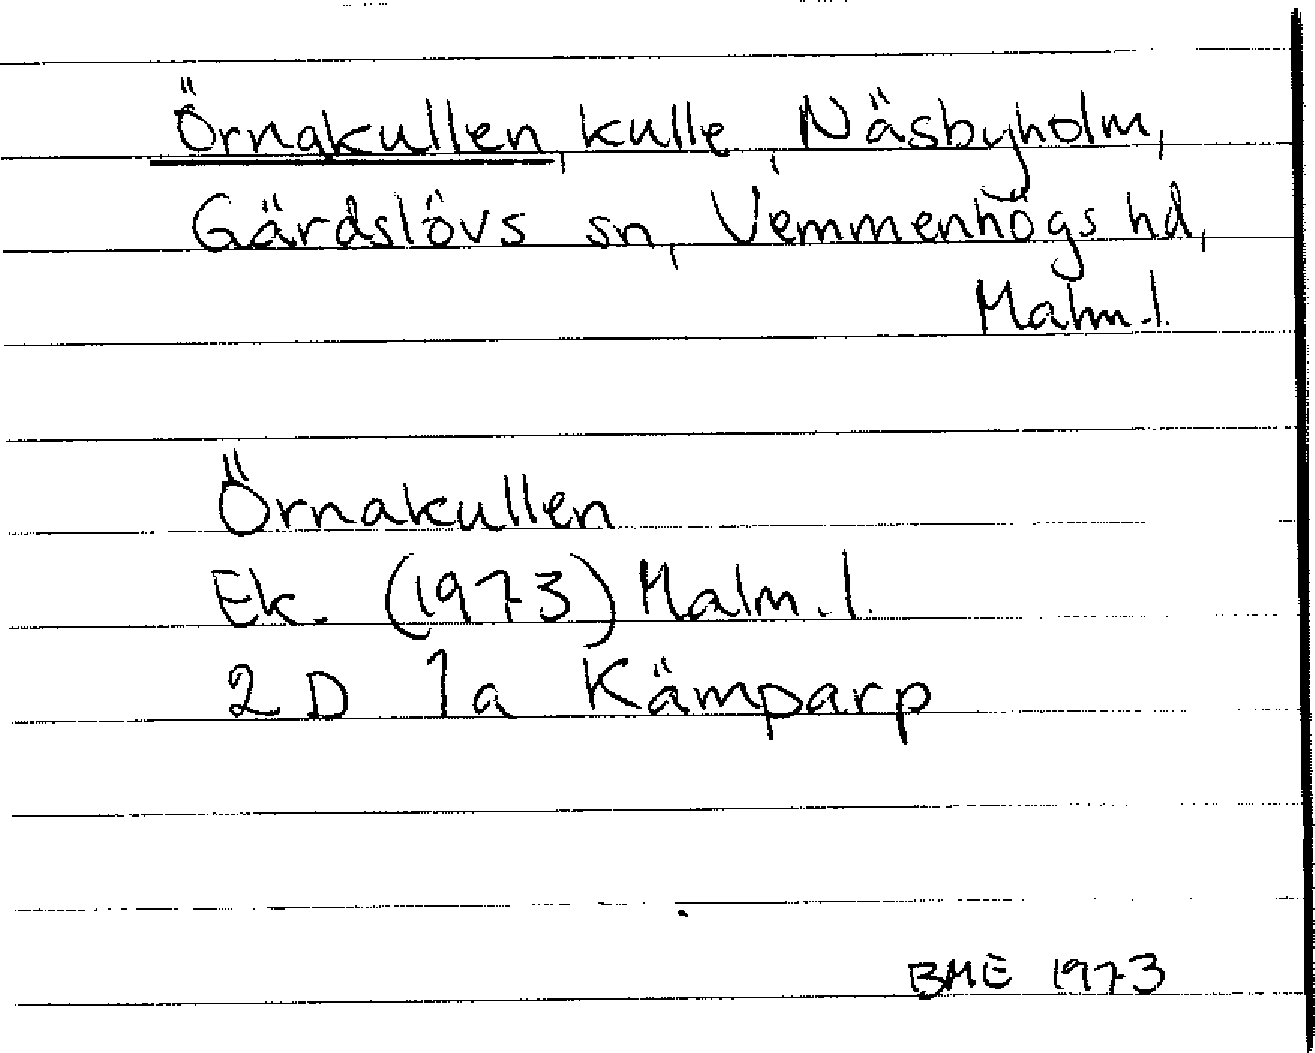 Örnakullen, kulle, Näsbyholm,
Gärdslövs sn, Vemmenhögs hd,
Malm.l.
Örnakullen
Ek. (1973) Malm.l.
2 D 1a Kämparp
BME 1973